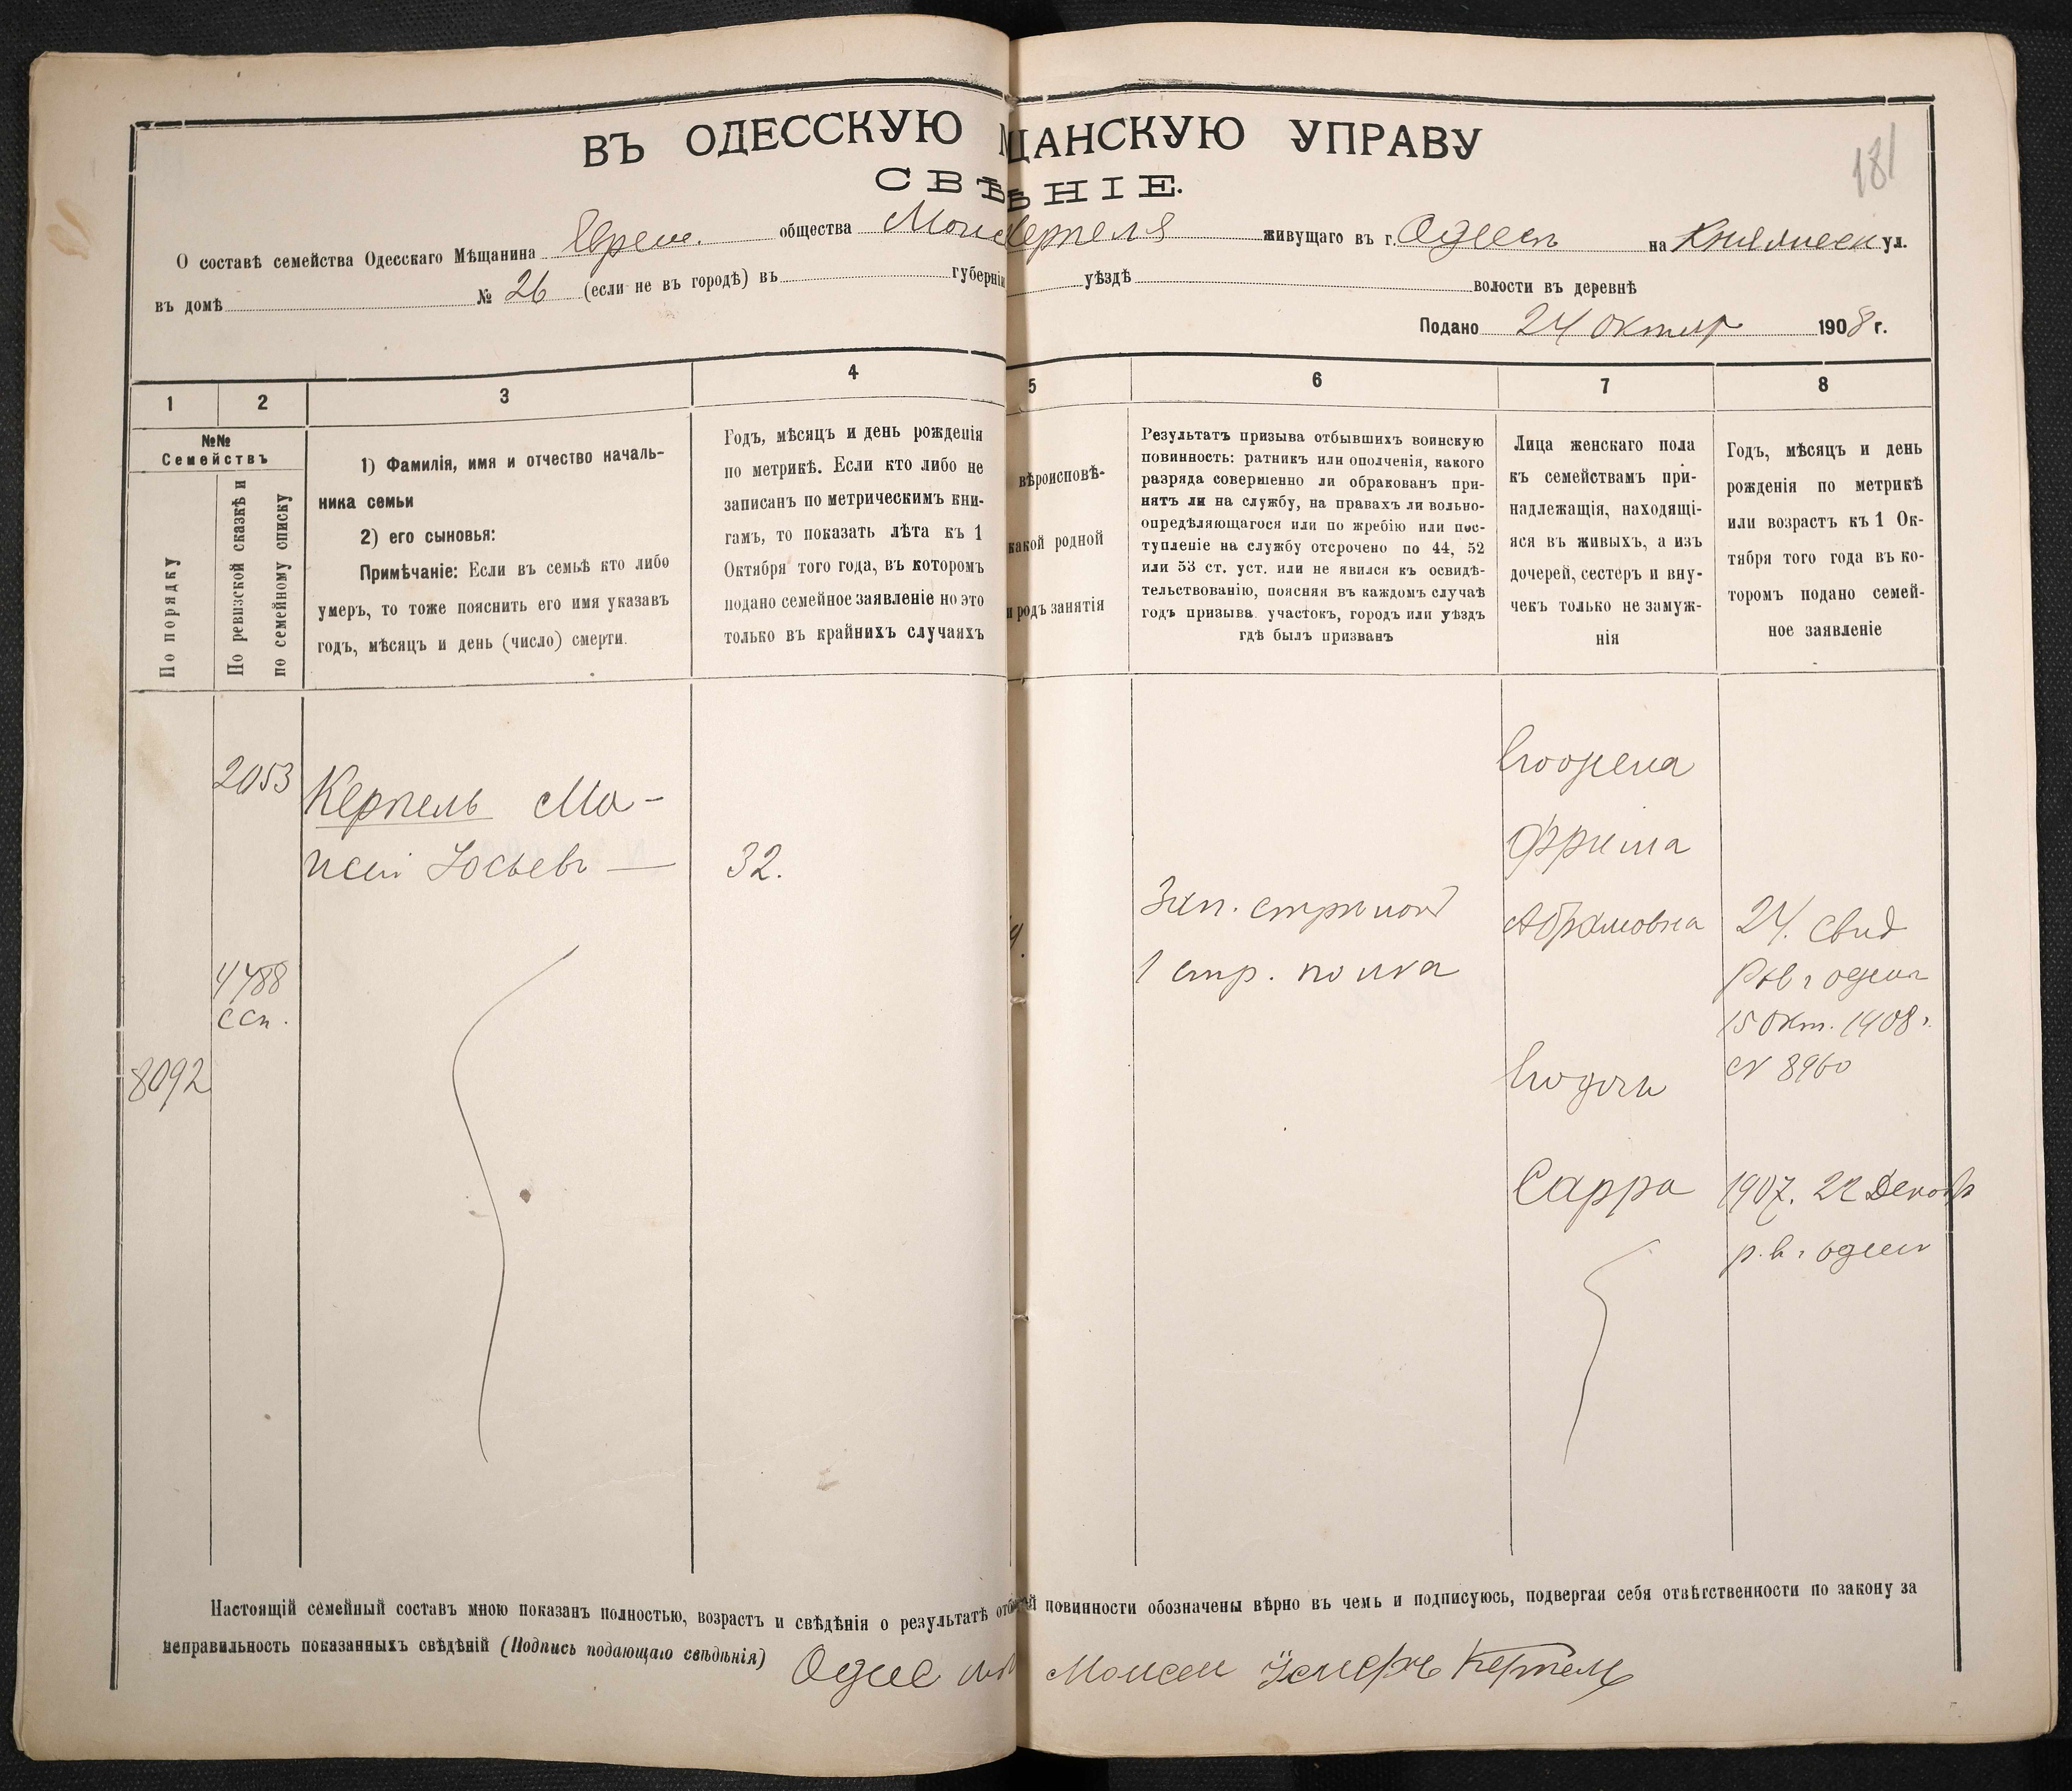 ВЪ ОДЕССКУЮ М ЩАНСКУЮ УПРАВУ
181
СВѢ НІЕ.
О составѣ семейства Одесскаго Мѣщанина Евреис. общества Моис Керпеля живущаго въ г. Одессѣ на Княжеск ул.
въ домѣ № 26 (если не въ городѣ) въ губерніи уѣздѣ волости въ деревнѣ
Подано 24 октябр 1908 г.
1 2 3 4 5 6 7 8
№№
Семействъ
По порядку
По ревизской сказкѣ и
по семейному списку
1) Фамилія, имя и отчество началь-
ника семьи
2) его сыновья:
Примѣчаніе: Если въ семьѣ кто либо
умеръ, то тоже пояснить его имя указавъ
годъ, мѣсяцъ и день (число) смерти.
Годъ, мѣсяцъ и день рожденія
по метрикѣ. Если кто либо не
записанъ по метрическимъ кни-
гамъ, то показать лѣта къ 1
Октября того года, въ которомъ
подано семейное заявленіе но это
только въ крайнихъ случаяхъ
вѣроисповѣ-
какой родной
и родъ занятія
Результатъ призыва отбывшихъ воинскую
повинность: ратникъ или ополченія, какого
разряда совершенно ли обракованъ при-
нятъ ли на службу, на правахъ ли вольно-
опредѣляющагося или по жребію или пос-
тупленіе на службу отсрочено по 44, 52
или 53 ст. уст. или не явился къ освидѣ-
тельствованію, поясняя въ каждомъ случаѣ
годъ призыва участокъ, городъ или уѣздъ
гдѣ былъ призванъ
Лица женскаго пола
къ семействамъ при-
надлежащія, находящі-
яся въ живыхъ, а изъ
дочерей, сестеръ и вну-
чекъ только не замуж-
нія
Годъ, мѣсяцъ и день
рожденія по метрикѣ
или возрастъ къ 1 Ок-
тября того года въ ко-
торомъ подано семей-
ное заявленіе
2053
Керпель Мо-
исей Іосьевъ
32.
4488
ссп.
8092
Зап. стр
1 стр. полка
Его жена
Фрима
Абрамовна
24. свид
Рав г одесы
15 Окт. 1908 г.
№ 8960
Его дочь
Сарра
1907. 22 Декабр
р. в г Одессе
Настоящій семейный составъ мною показанъ полностью, возрастъ и свѣдѣнія о результатѣ отб ей повинности обозначены вѣрно въ чемъ и подписуюсь, подвергая себя отвѣтственности по закону за
неправильность показанныхъ свѣдѣній (Подпись подающаго свѣдѣнія) Одес Моисей Керпель